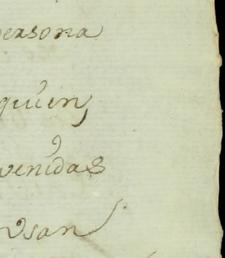 persona
quien,
venidas
Vsan